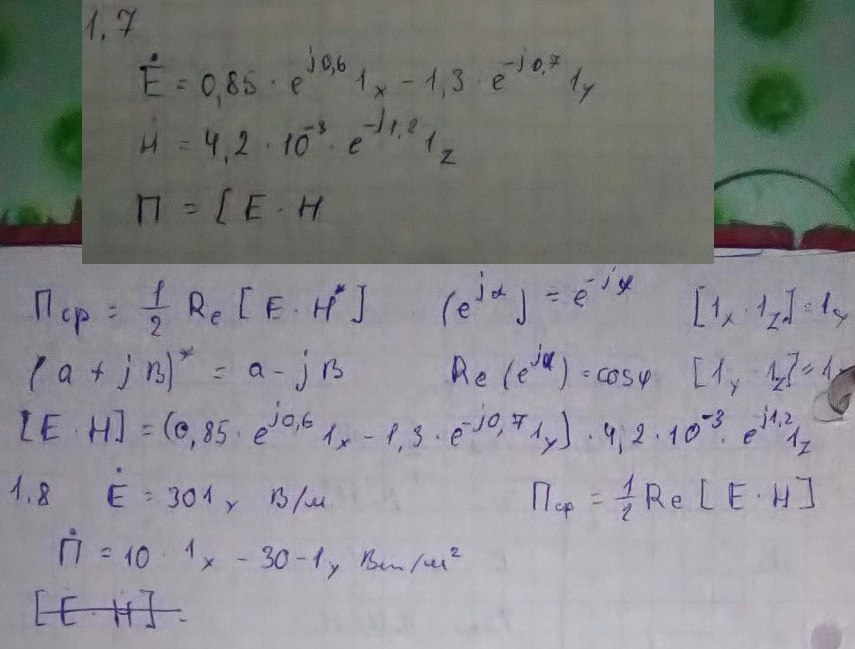 1.7
Ė = 0,85 · e^{j0,6} 1_x - 1,3 · e^{-j0,7} 1_y
Ḣ = 4,2 · 10^{-3} · e^{-j1,2} 1_z
П = [E · H
П_ср = 1/2 Re [E · H*] (e^{jα}) = e^{-jφ} [1_x · 1_z] = 1_y
(a + jB)* = a - jB Re (e^{jα}) = cosφ [1_y 1_z] =
[E · H] = (0,85 · e^{j0,6} 1_x - 1,3 · e^{-j0,7} 1_y) · 4,2 · 10^{-3} · e^{j1,2} 1_z
1.8 Ė = 30 1_y В/м П_ср = 1/2 Re [E · H]
Π̇ = 10 · 1_x - 30 - 1_y Вт/м²
[E · H] -